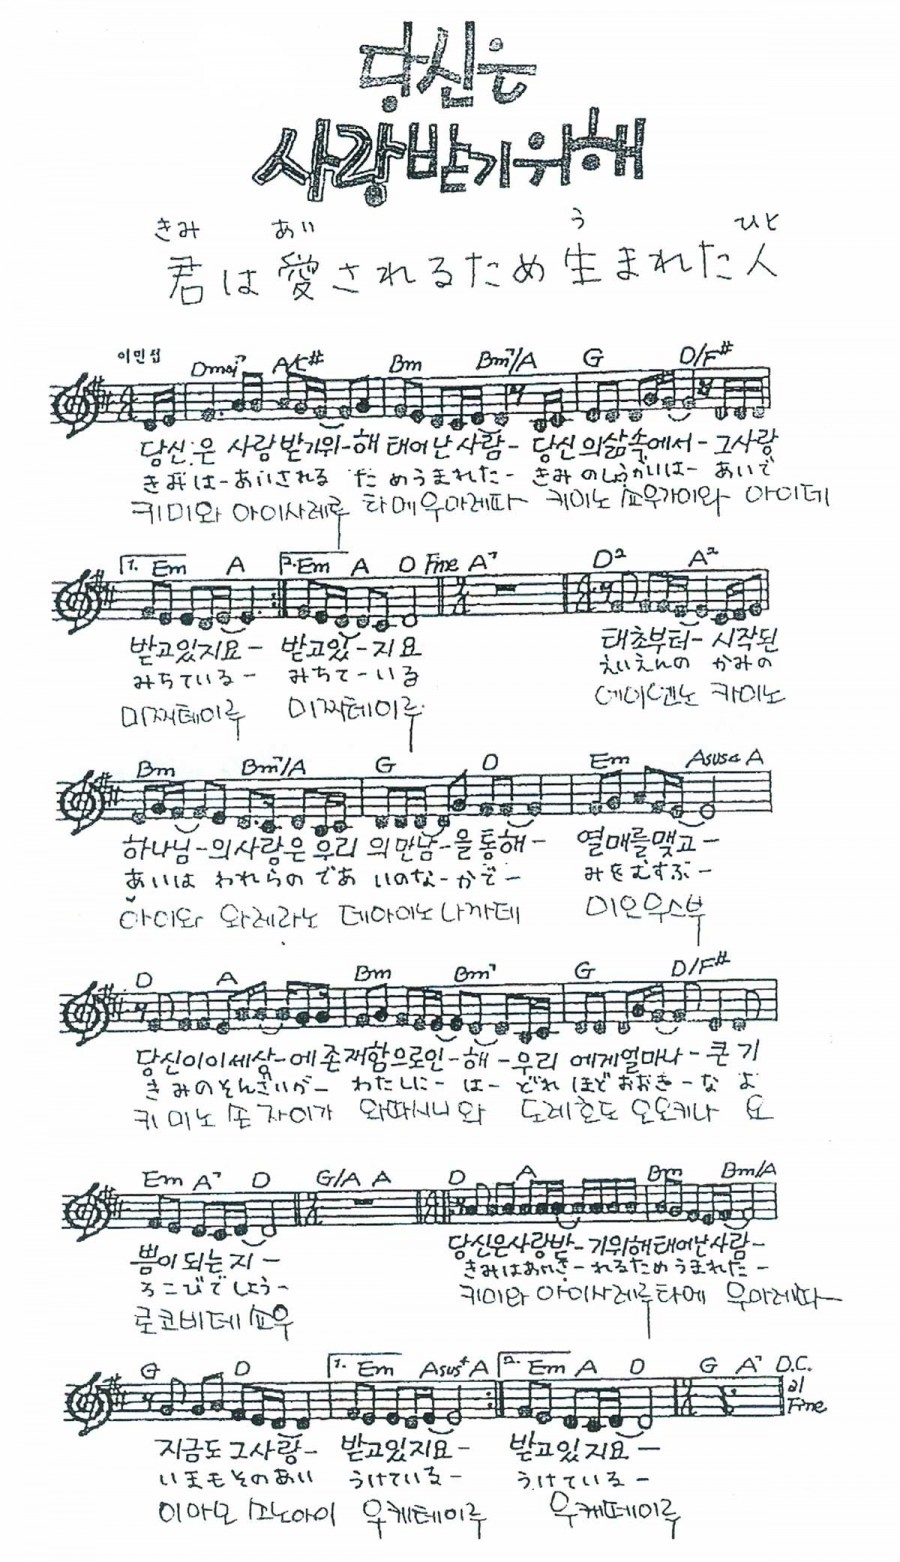 당신은
사랑받기위해
きみ あい う ひと
君は愛されるため生まれた人
이민섭
Dmaj7 A/C# Bm Bm7/A G D/F#
당신은 사랑받기위-해 태어난사람- 당신의삶속에서- 그사랑
きみは-あいされる ためうまれた- きみのしょうがいは- あいで
키미와 아이사레루 타메우마레따 키미노 쇼우가이와 아이데
1. Em A 2. Em A D Fine A7 D2 A2
받고있지요- 받고있-지요 태초부터- 시작된
みちている- みちて-いる えいえんの かみの
미찌테이루 미찌테이루 에이엔노 카미노
Bm Bm7/A G D Em Asus4 A
하나님-의사랑은 우리 의만남-을통해- 열매를맺고-
あいは われらの であ いのな-かで- みをむすぶ-
아이와 와레라노 데아이노 나까데 미오무스부
D A Bm Bm7 G D/F#
당신이이세상-에존재함으로인-해-우리 에게얼마나-큰기
きみのそんざいが- わたしに-は-どれ ほどおおき-な よ
키미노 손자이가 와따시니와 도레호도 오오키나 요
Em A7 D G/A A D A Bm Bm/A
쁨이되는지- 당신은사랑받-기위해태어난사람-
ろこびでしょう- きみはあいさ-れるためうまれた-
로코비데쇼우 키미와 아이사레루타메 우마레따-
G D 1. Em Asus4 A 2. Em A D G A7 D.C. al Fine
지금도그사랑- 받고있지요- 받고있지요-
いまもそのあい うけている- うけている-
이마모 소노아이 우케테이루 우케떼이루